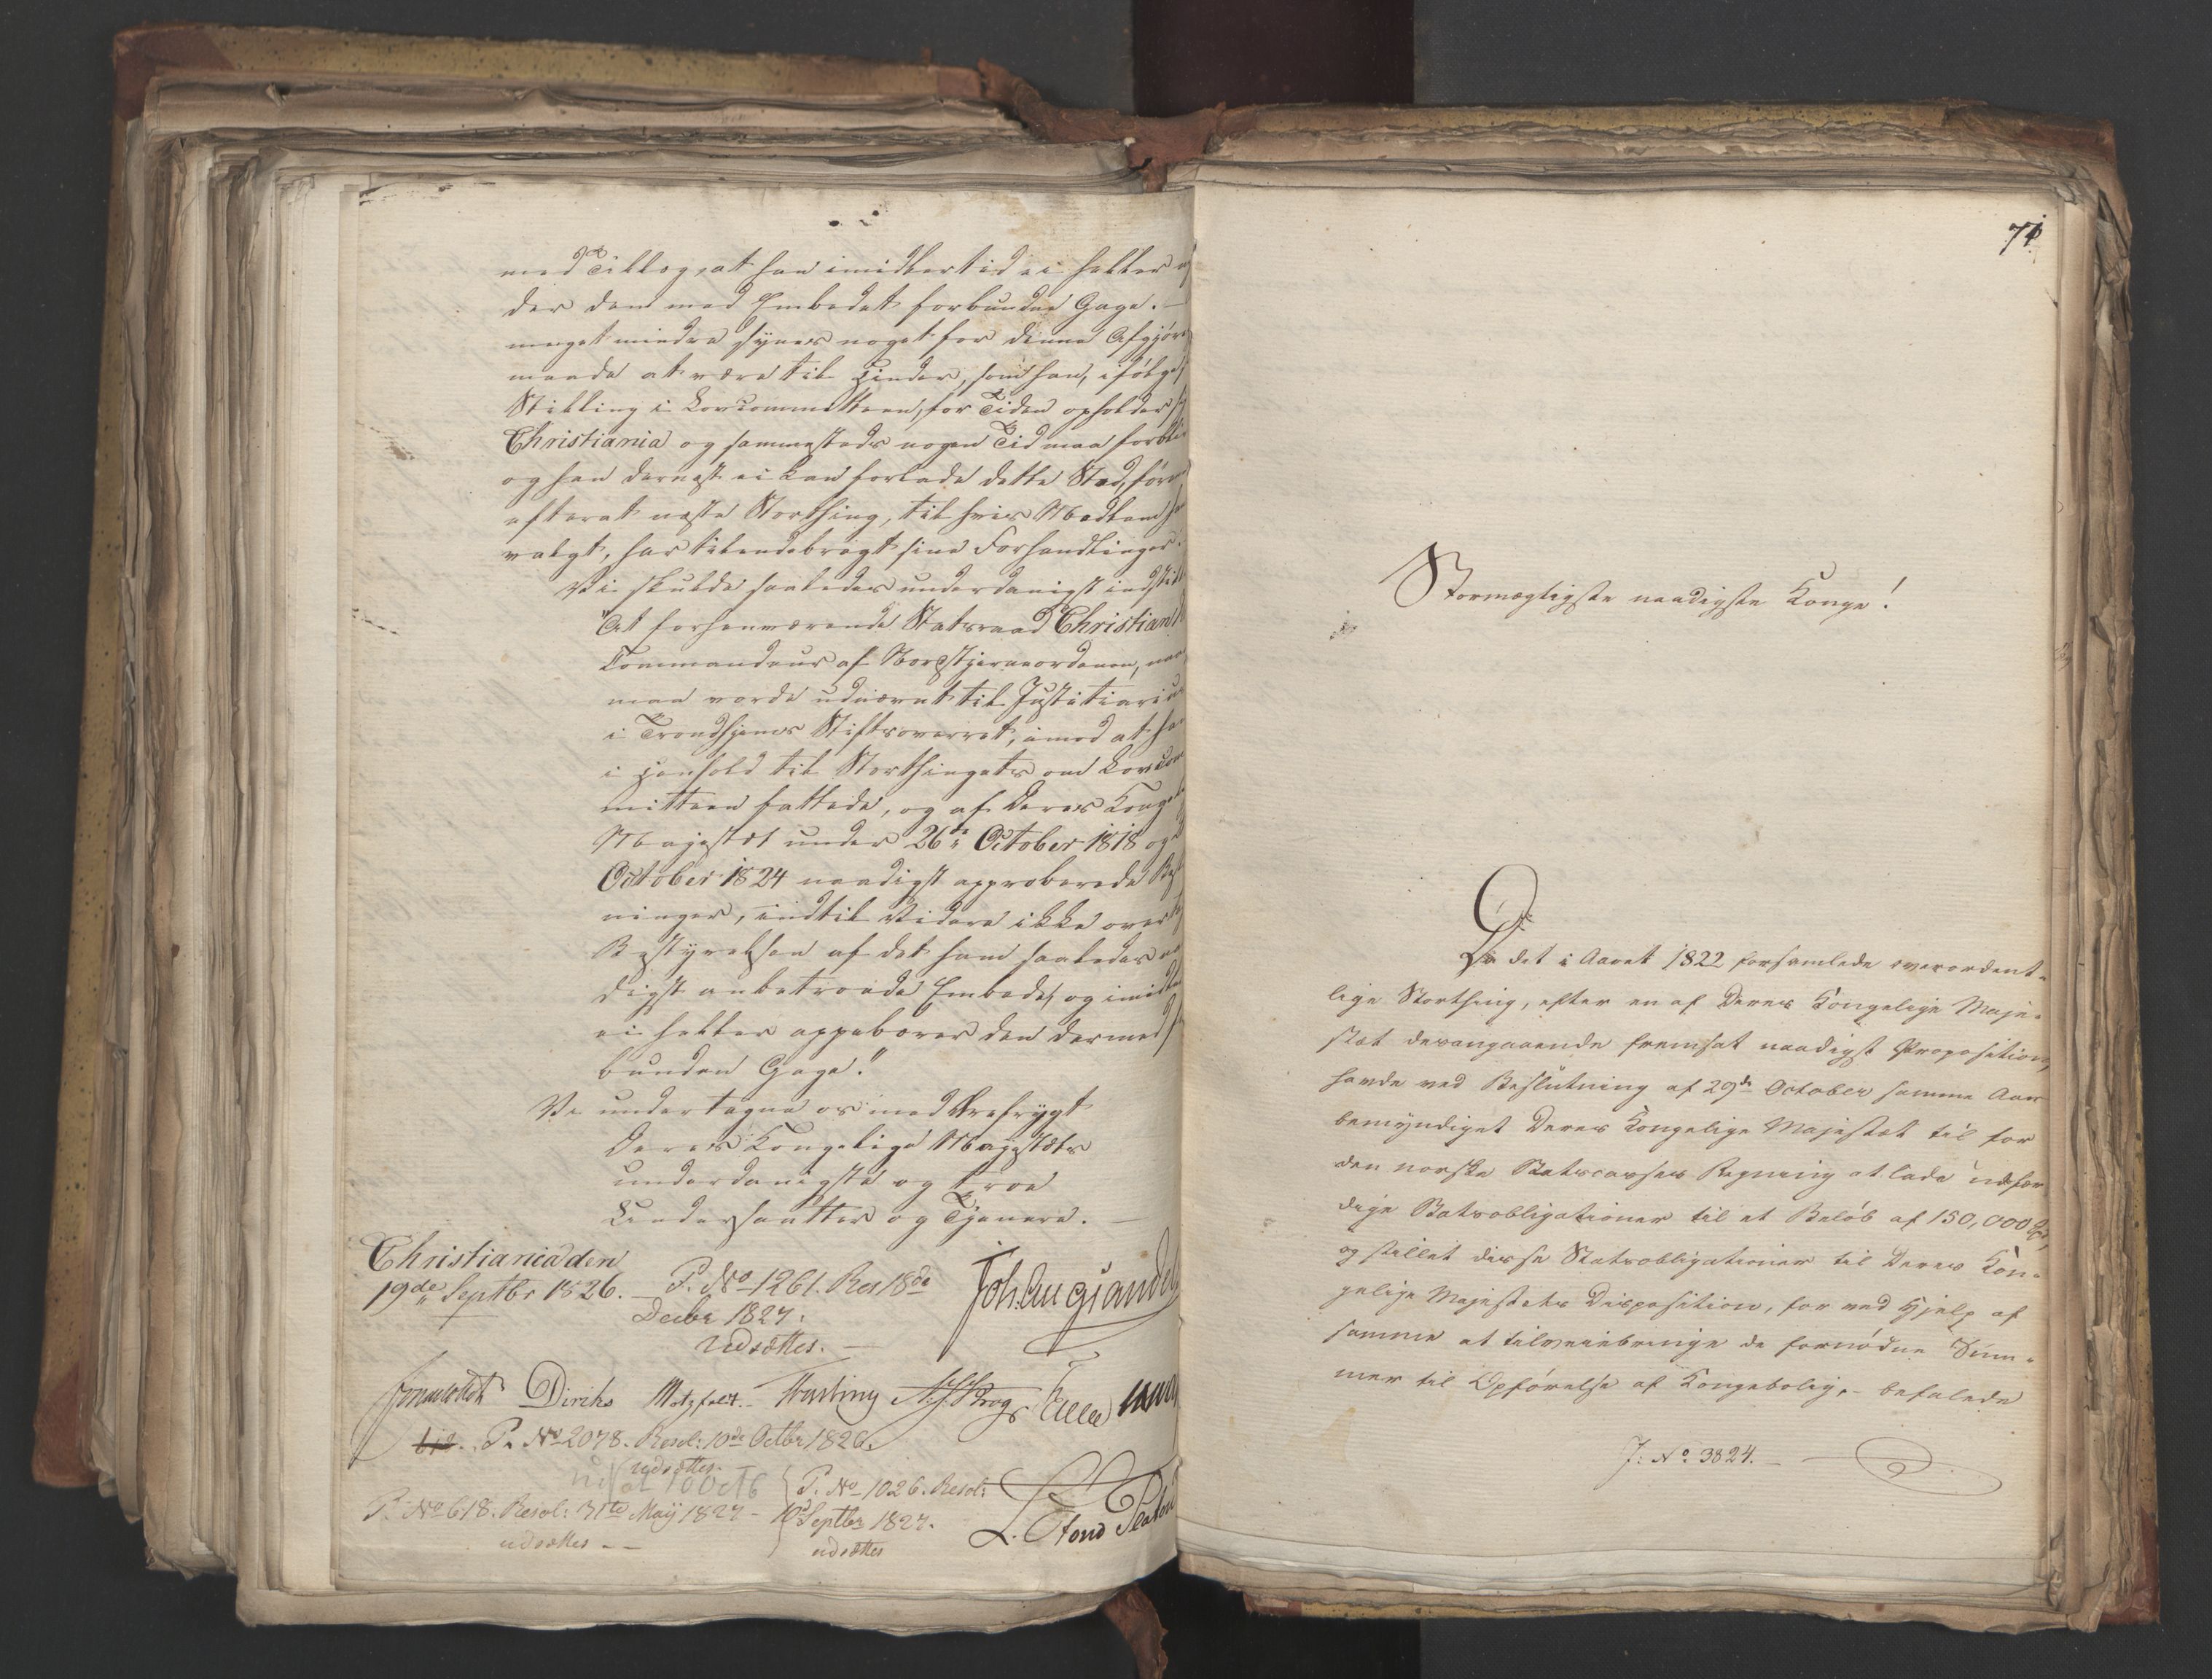 med Tillæg, at han imidlertid ei heller
der den med Embedet forbundne Gage. —
meget mindre synes noget for denne Afgjørelses
maade at være til Hinder, som han, ifølge
Stilling i Lovcommitteen, for Tiden opholder
Christiania og sammesteds nogen Tid maa forbli
og han dernæst ei kan forlade dette Sted, føren
efterat næste Storthing, til hvis Medlem han
valgt, har tilendebragt sine Forhandlinger.
Vi skulde saaledes underdanigst indstille
"At forhenværende Statsraad Christian
Commandeur af Nordstjerneordenen, naa
maa vorde udnævnt til Justitiarius
i Trondhjems Stiftsoverret, imod at han
i Henhold til Storthingets om Lovcom
mitteen fattede, og af Deres Kongel
Majestæt under 26de October 1818 og
October 1824 naadigst approberede Bestem
ninger, indtil Videre ikke over
Bestyrelsen af det ham saaledes na
digst anbetroede Embede, og imidler
ei heller oppebærer den dermed for
bunden Gage."
Vi undertegne os med Ærefrygt
Deres Kongelige Majestæts
underdanigste og troe
Undersaatter og Tjenere. —
Christiania den
19de Septbr 1826. —
P. No 1261. Res 18de
Decbr 1827.
udsættes. —
Diriks Motzfeldt. Krog
P. No 2078. Resol: 10de Octbr 1826.
udsættes.
udsat 10 Octb
P. No 618. Resol: 31te Maÿ 1827 –
udsættes. —
P. No 1026. Resol:
10d Septbr 1827.
udsættes
74.
Stormægtigste naadigste Konge!
Da det i Aaret 1822 forsamlede overordent-
lige Storthing, efter en af Deres Kongelige Maje-
stæt desangaaende fremsat naadigst Proposition,
havde ved Beslutning af 29de October samme Aar
bemyndiget Deres Kongelige Majestæt til for
den norske Statscasses Regning at lade udfær
dige Statsobligationer til et Beløb af 150,000 Spd,
og stillet disse Statsobligationer til Deres Kon-
gelige Majestæts Disposition, for ved Hjelp af
samme at tilveiebringe de fornødne Sum-
mer til Opførelse af Kongebolig, – befalede
J: No 3824. —